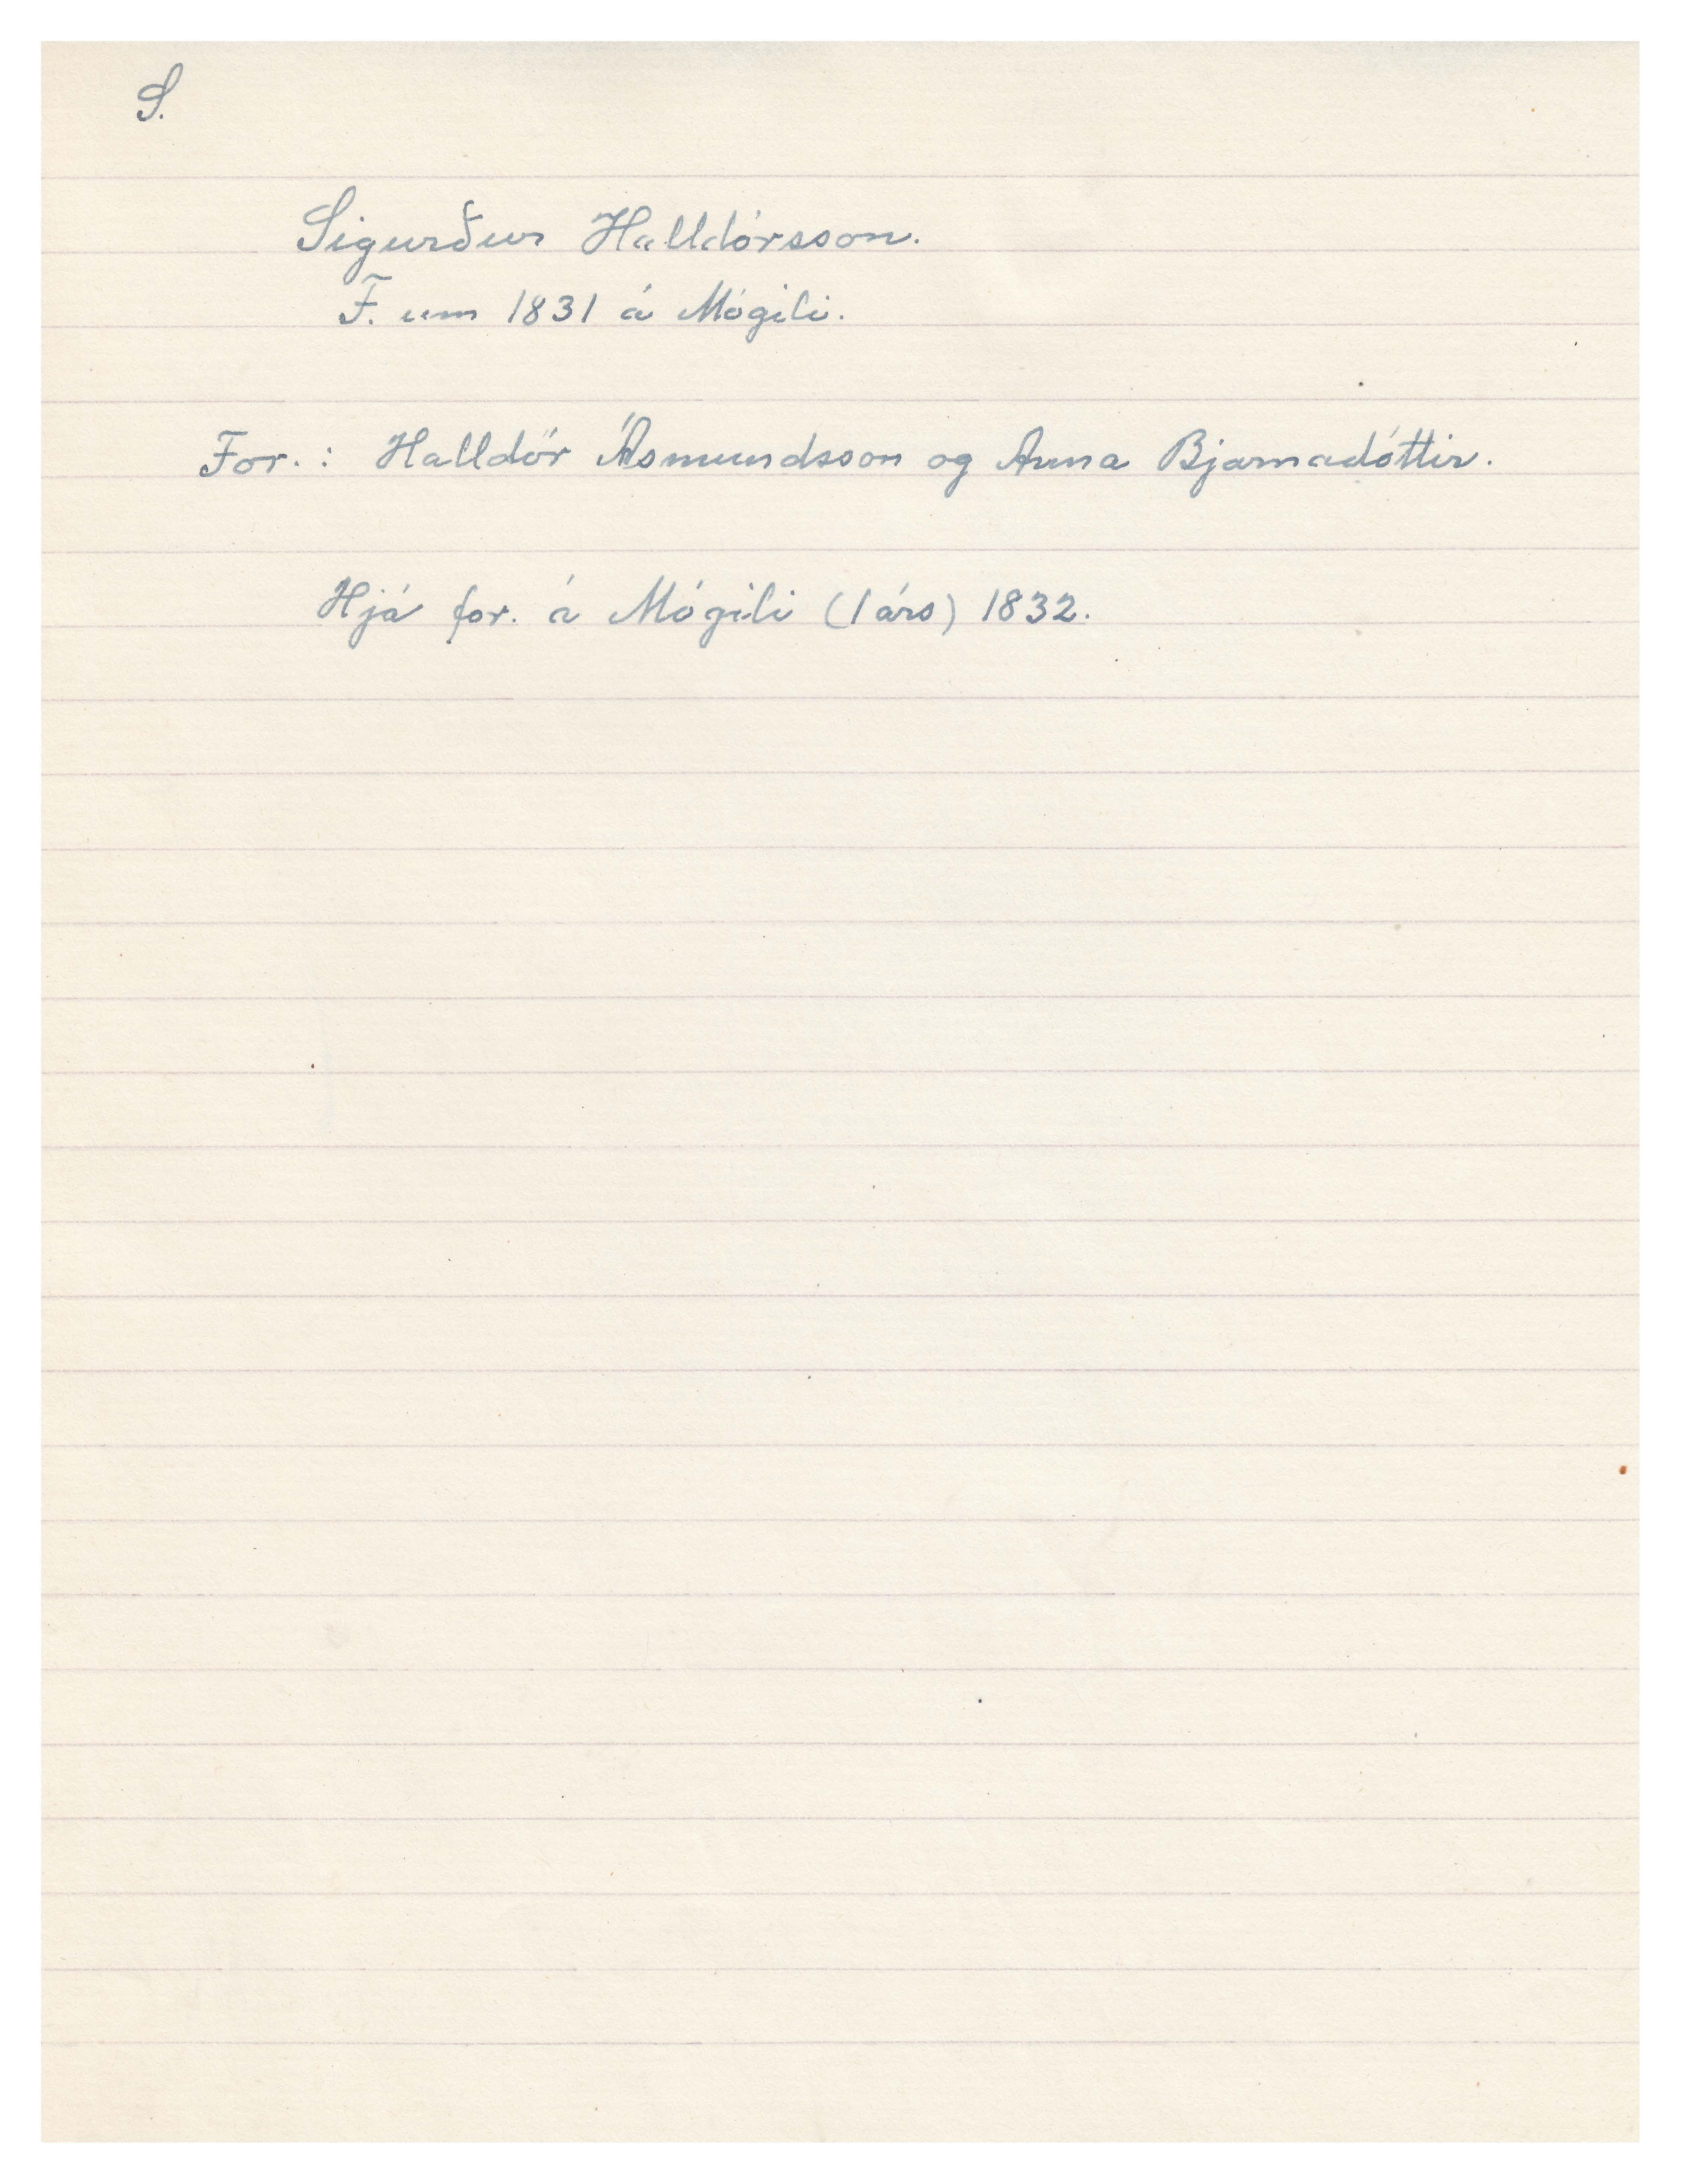 S.
Sigurður Halldórsson.
F. um 1831 á Mógili.
For.: Halldór Ásmundsson og Anna Bjarnadóttir.
Hjá for. á Mógili (1 árs) 1832.